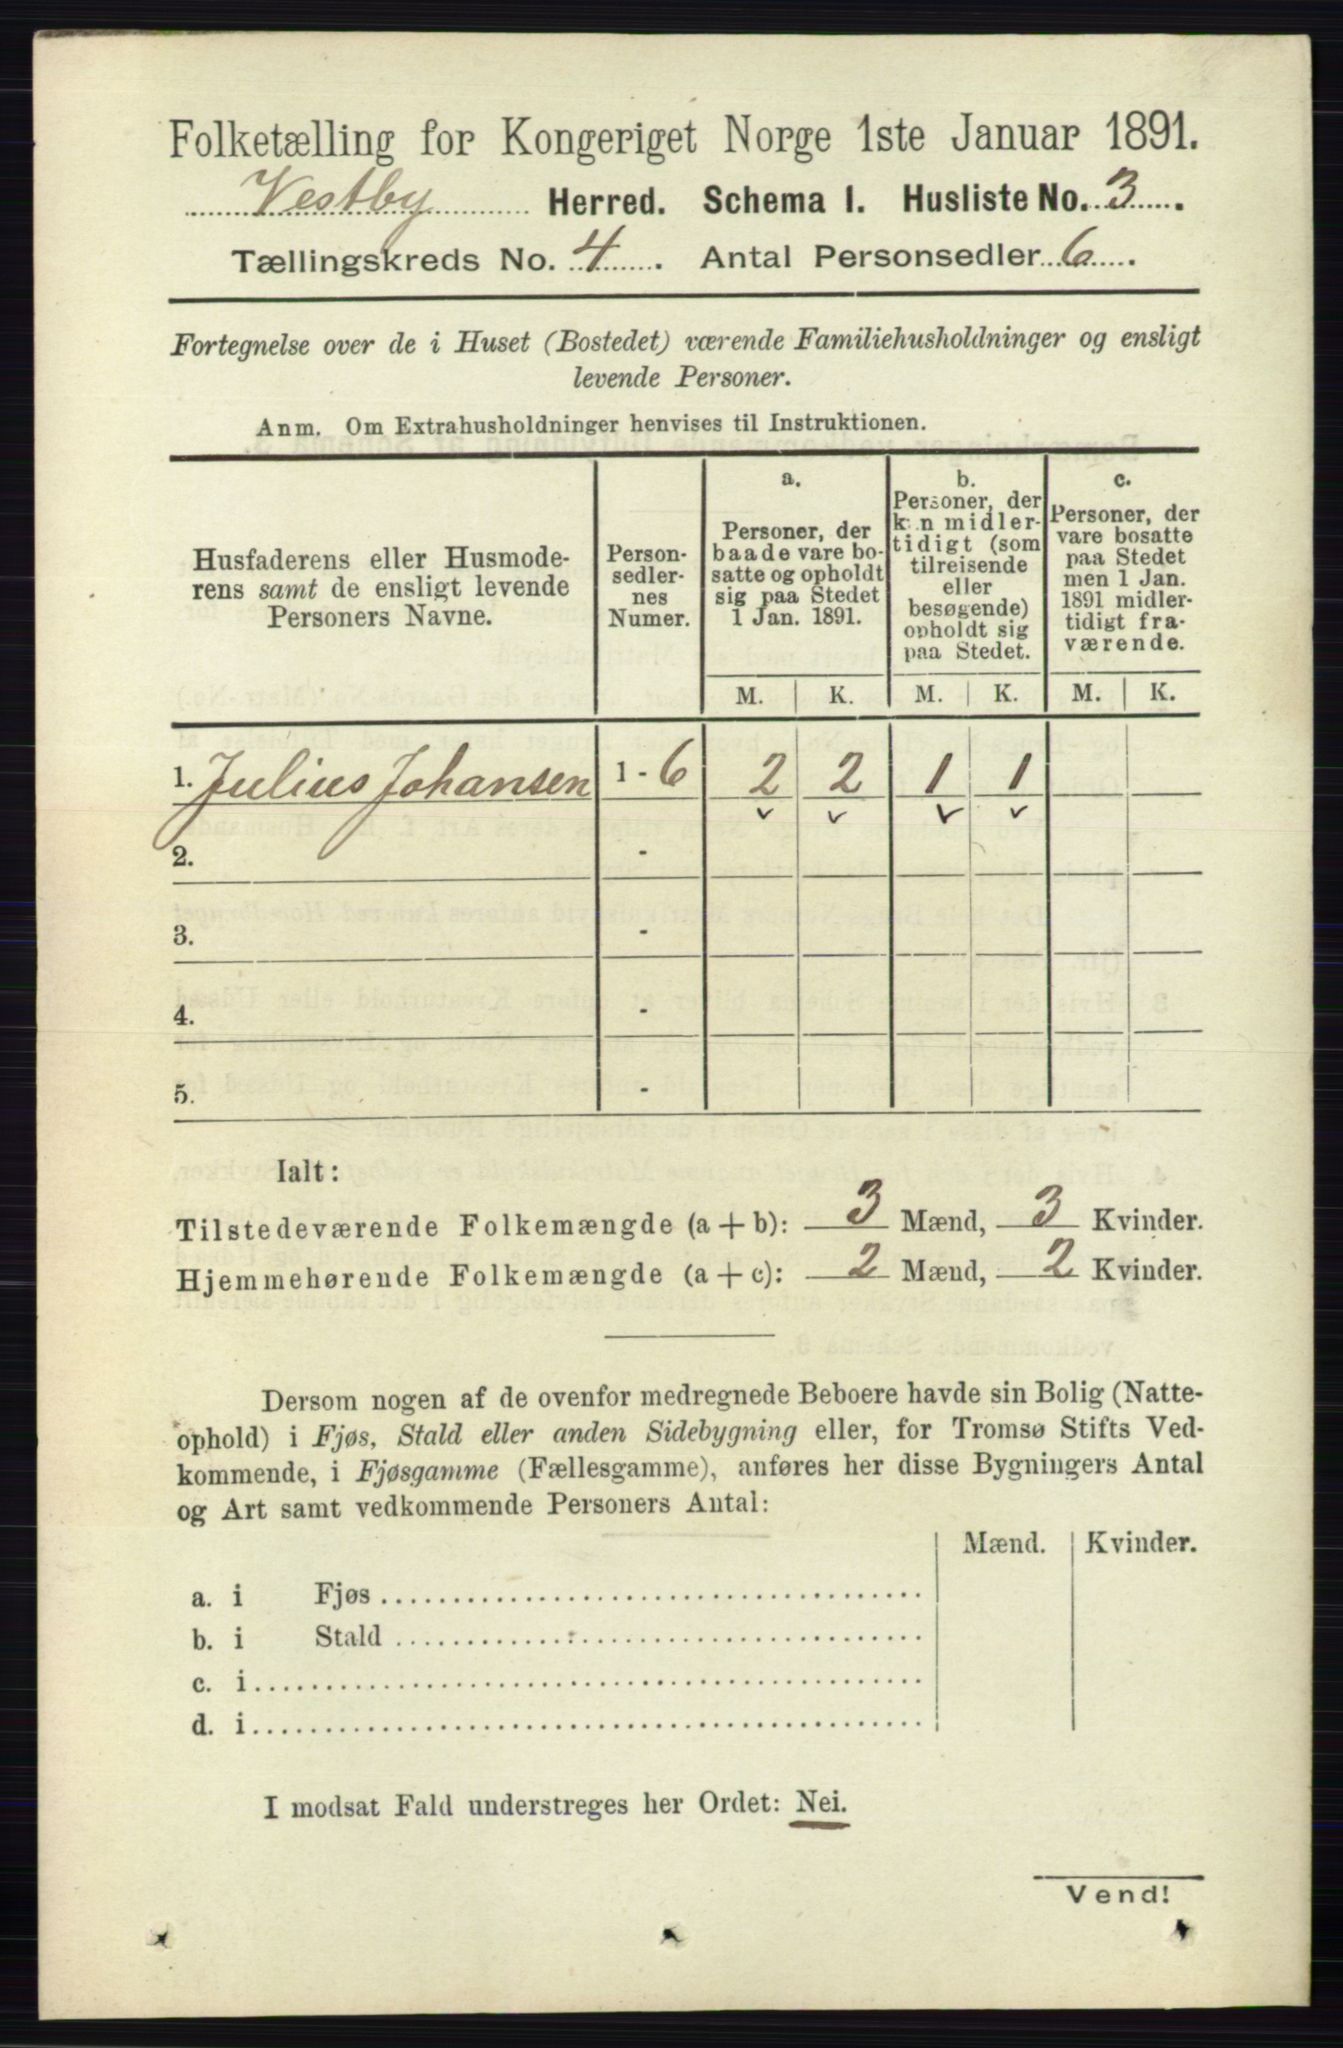 Folketælling for Kongeriget Norge 1ste Januar 1891.
Vestby Herred. Schema I. Husliste No. 3.
Tællingskreds No. 4. Antal Personsedler 6.
Fortegnelse over de i Huset (Bostedet) værende Familiehusholdninger og ensligt
levende Personer.
Anm. Om Extrahusholdninger henvises til Instruktionen.
Husfaderens eller Husmode-
rens samt de ensligt levende
Personers Navne.
Person-
sedler-
nes
Numer.
a.
Personer, der
baade vare bo-
satte og opholdt
sig paa Stedet
1 Jan. 1891.
b.
Personer, der
kun midler-
tidigt (som
tilreisende
eller
besøgende)
opholdt sig
paa Stedet.
c.
Personer, der
vare bosatte
paa Stedet
men 1 Jan.
1891 midler-
tidigt fra-
værende.
M. K. M. K. M. K.
1. Julius Johansen 1 - 6 2 2 1 1
2. -
3. -
4. -
5. -
Ialt:
Tilstedeværende Folkemængde (a + b): 3 Mænd, 3 Kvinder.
Hjemmehørende Folkemængde (a + c): 2 Mænd, 2 Kvinder.
Dersom nogen af de ovenfor medregnede Beboere havde sin Bolig (Natte-
ophold) i Fjøs, Stald eller anden Sidebygning eller, for Tromsø Stifts Ved-
kommende, i Fjøsgamme (Fællesgamme), anføres her disse Bygningers Antal
og Art samt vedkommende Personers Antal:
Mænd. Kvinder.
a. i Fjøs
b. i Stald
c. i
d. i
I modsat Fald understreges her Ordet: Nei.
Vend!